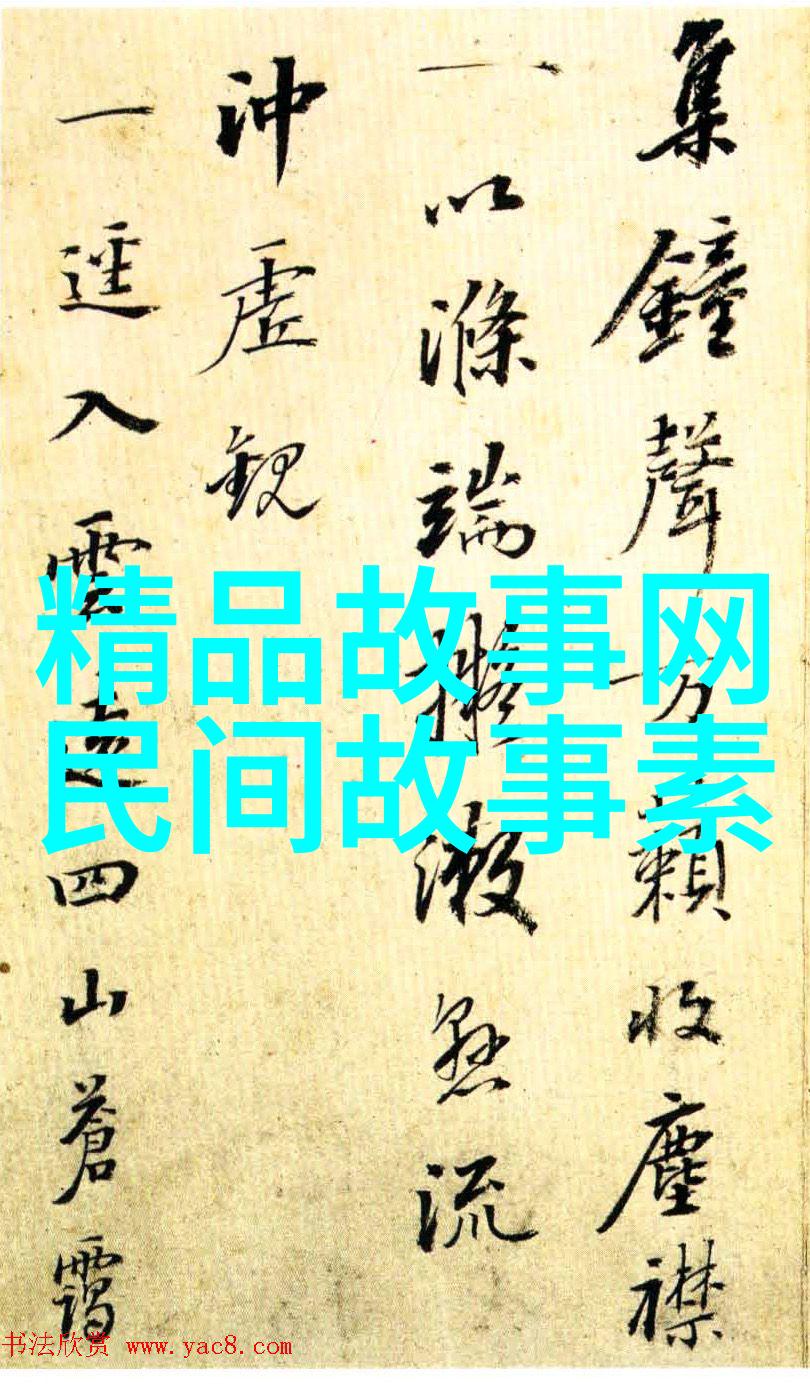 集鐘聲方賴收塵襟
一以滌端擬漱懸流
沖虛觀
一逕入雲遠四山蒼靄
精品故事网
民间故事素
书法欣赏 www.yac8.com